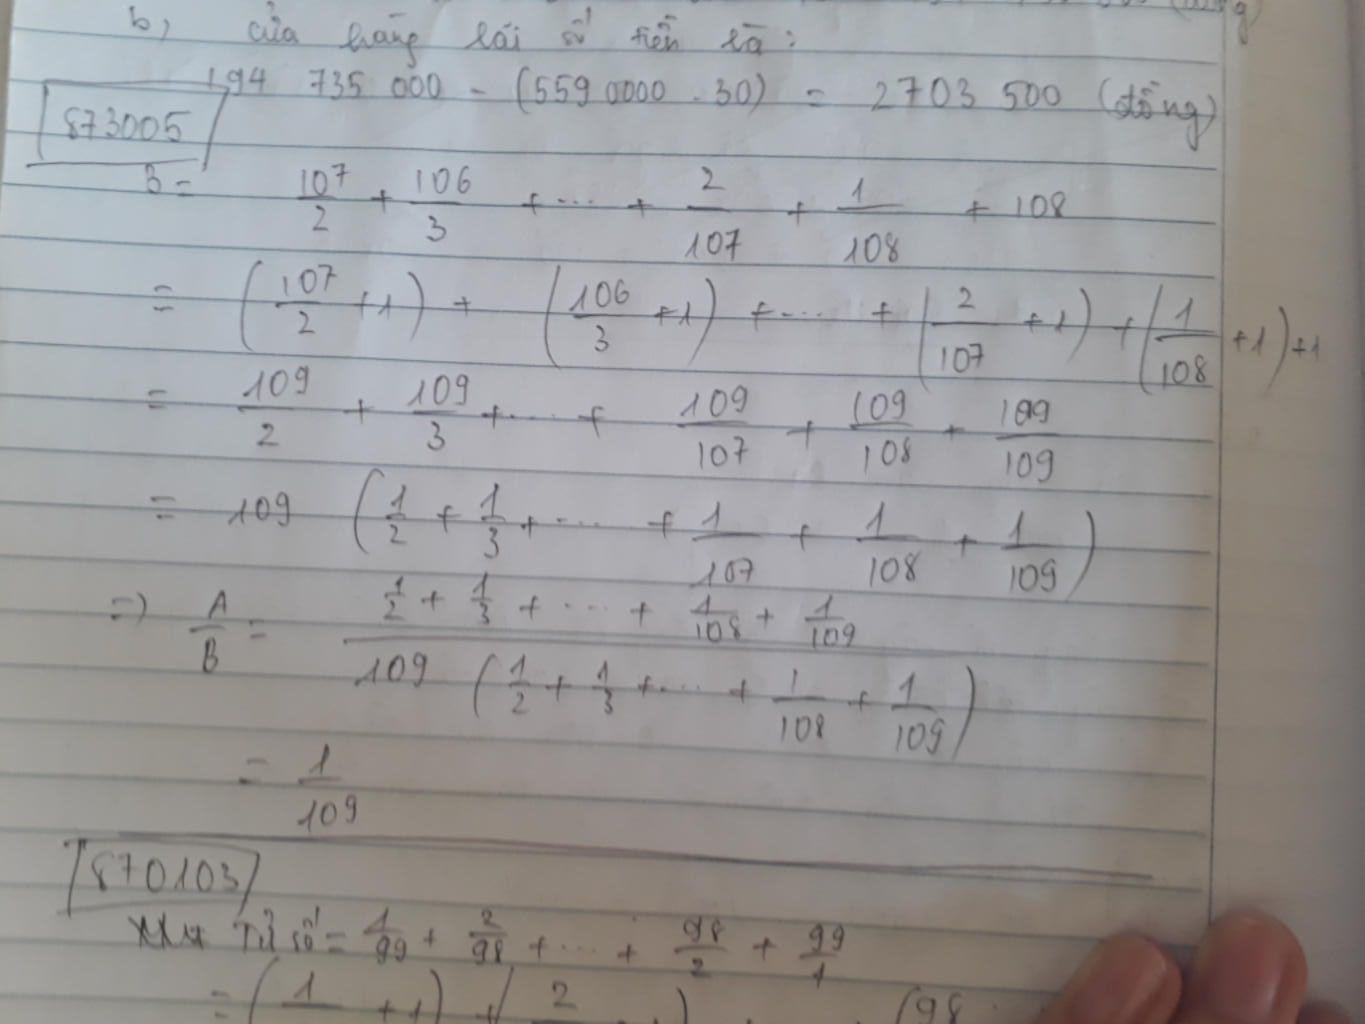 b, của hàng lãi số tiền là:
194 735 000 - (559 0000 . 30) = 2703 500 (đồng)
873005
B = 107/2 + 106/3 + ... + 2/107 + 1/108 + 108
= (107/2 + 1) + (106/3 + 1) + ... + (2/107 + 1) + (1/108 + 1) + 1
= 109/2 + 109/3 + ... + 109/107 + 109/108 + 109/109
= 109 (1/2 + 1/3 + ... + 1/107 + 1/108 + 1/109)
=> A/B = (1/2 + 1/3 + ... + 1/108 + 1/109) / (109 (1/2 + 1/3 + ... + 1/108 + 1/109))
= 1/109
870103
Tử số = 1/99 + 2/98 + ... + 98/2 + 99/1